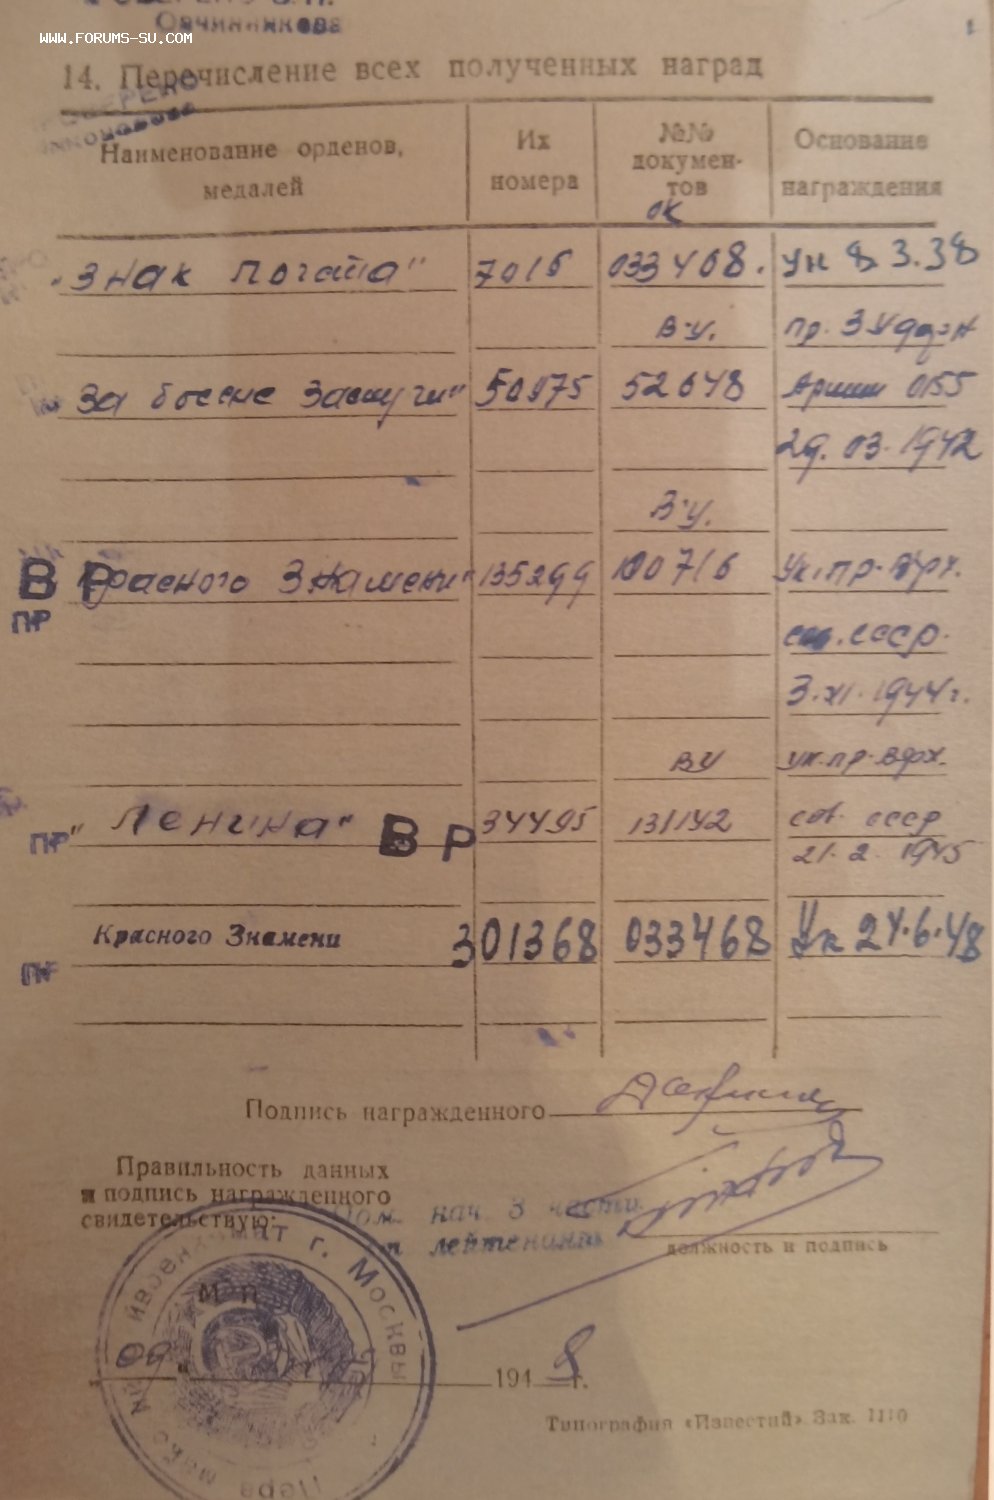 Овчинникова
WWW.FORUMS-SU.COM
14. Перечисление всех полученных наград
Наименование орденов, медалей
Их номера
№№ документов
Основание награждения
ок
"Знак Почёта" 7016 033468. Ук 8.3.38
В.У. пр. 3 Уд
За боевые заслуги" 50975 52648 Армии 0155
29.03.1942
В.У.
ВР Красного Знамени" 135299 100716 Ук. пр. Врх.
ПР
сов. СССР.
3.XI.1944г.
ВУ ук. пр. Врх.
ПР "Ленина" ВР 34495 131142 сов. СССР
21.2.1945
Красного Знамени 301368 033468 Ук 24.6.48
ПР
Подпись награжденного
Правильность данных
и подпись награжденного
свидетельствую:
Пом. нач. 3 части
лейтенант
должность и подпись
г. Москвы
М П
09
1948г.
Типография «Известий» Зак. 1110